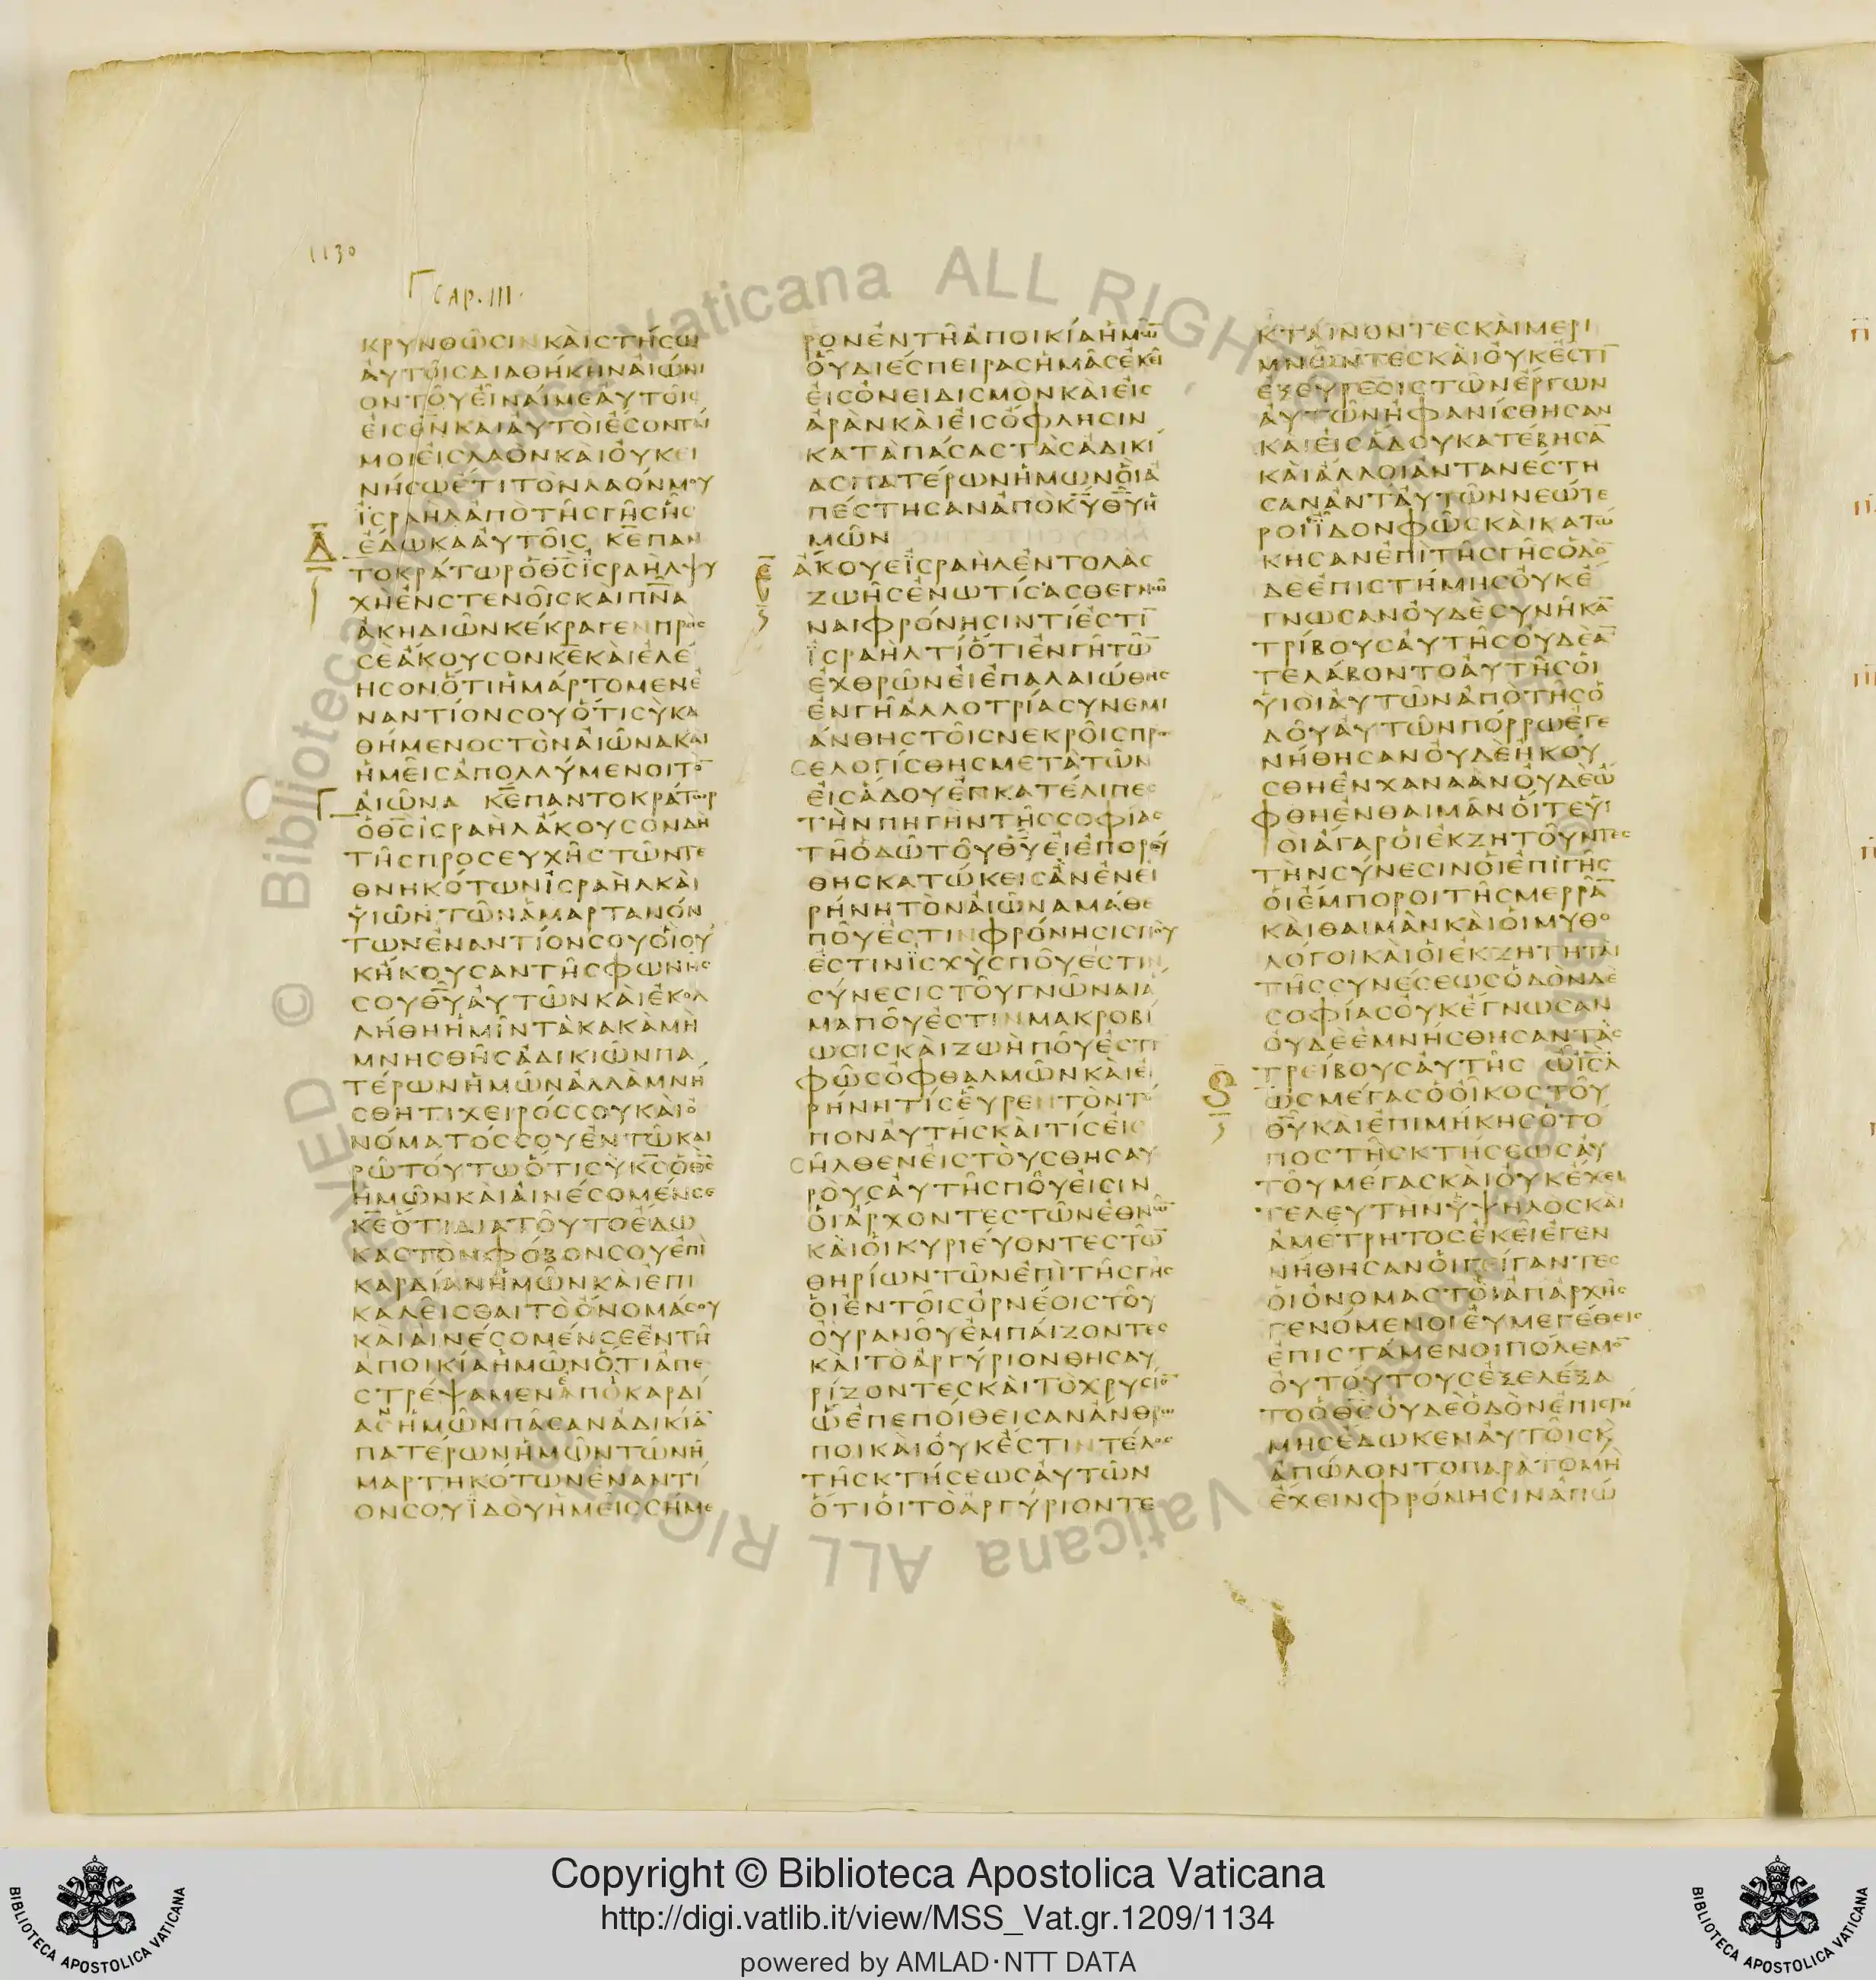 1130
Γ CAP. III.
ΚΡΥΝΘΩϹΙΝΚΑΙϹΤΗϹΩ
ΑΥΤΟΙϹΔΙΑΘΗΚΗΝΑΙΩΝΙ
ΟΝΤΟΥΕΙΝΑΙΜΕΑΥΤΟΙϹ
ΕΙϹΘΝΚΑΙΑΥΤΟΙΕϹΟΝΤΑΙ
ΜΟΙΕΙϹΛΑΟΝΚΑΙΟΥΚΕΙ
ΝΗϹΩΕΤΙΤΟΝΛΑΟΝΜΟΥ
ΙϹΡΑΗΛΑΠΟΤΗϹΓΗϹΗϹ
Δ
ΕΔΩΚΑΑΥΤΟΙϹ Κ̅Ε̅ΠΑΝ
ΤΟΚΡΑΤΩΡΟΘ̅Ϲ̅ΙϹΡΑΗΛΨΥ
ΧΗΕΝϹΤΕΝΟΙϹΚΑΙΠ̅Ν̅Α̅
ΑΚΗΔΙΩΝΚΕΚΡΑΓΕΝΠΡΟϹ
ϹΕΑΚΟΥϹΟΝΚ̅Ε̅ΚΑΙΕΛΕ
ΗϹΟΝΟΤΙΗΜΑΡΤΟΜΕΝΕ
ΝΑΝΤΙΟΝϹΟΥΟΤΙϹΥΚΑ
ΘΗΜΕΝΟϹΤΟΝΑΙΩΝΑΚΑΙ
ΗΜΕΙϹΑΠΟΛΛΥΜΕΝΟΙΤΟ̅
Γ
ΑΙΩΝΑ Κ̅Ε̅ΠΑΝΤΟΚΡΑΤΩΡ
ΟΘ̅Ϲ̅ΙϹΡΑΗΛΑΚΟΥϹΟΝΔΗ
ΤΗϹΠΡΟϹΕΥΧΗϹΤΩΝΤΕ
ΘΝΗΚΟΤΩΝΙϹΡΑΗΛΚΑΙ
ΥΙΩΝΤΩΝΑΜΑΡΤΑΝΟΝ
ΤΩΝΕΝΑΝΤΙΟΝϹΟΥΟΙΟΥ
ΚΗΚΟΥϹΑΝΤΗϹΦΩΝΗϹ
ϹΟΥΘ̅Υ̅ΑΥΤΩΝΚΑΙΕΚΟΛ
ΛΗΘΗΗΜΙΝΤΑΚΑΚΑΜΗ
ΜΝΗϹΘΗϹΑΔΙΚΙΩΝΠΑ
ΤΕΡΩΝΗΜΩΝΑΛΛΑΜΝΗ
ϹΘΗΤΙΧΕΙΡΟϹϹΟΥΚΑΙΟ
ΝΟΜΑΤΟϹϹΟΥΕΝΤΩΚΑΙ
ΡΩΤΟΥΤΩΟΤΙϹΥΚ̅Ϲ̅ΟΘ̅Ϲ̅
ΗΜΩΝΚΑΙΑΙΝΕϹΟΜΕΝϹΕ
Κ̅Ε̅ΟΤΙΔΙΑΤΟΥΤΟΕΔΩ
ΚΑϹΤΟΝΦΟΒΟΝϹΟΥΕΠΙ
ΚΑΡΔΙΑΝΗΜΩΝΚΑΙΕΠΙ
ΚΑΛΕΙϹΘΑΙΤΟΟΝΟΜΑϹΟΥ
ΚΑΙΑΙΝΕϹΟΜΕΝϹΕΕΝΤΗ
ΑΠΟΙΚΙΑΗΜΩΝΟΤΙΑΠΕ
ϹΤΡΕΨΑΜΕΝΕΠΟΚΑΡΔΙ
ΑϹΗΜΩΝΠΑϹΑΝΑΔΙΚΙΑ̅
ΠΑΤΕΡΩΝΗΜΩΝΤΩΝΗ
ΜΑΡΤΗΚΟΤΩΝΕΝΑΝΤΙ
ΟΝϹΟΥΙΔΟΥΗΜΕΙϹϹΗΜΕ
ΡΟΝΕΝΤΗΑΠΟΙΚΙΑΗΜΩ̅
ΟΥΔΙΕϹΠΕΙΡΑϹΗΜΑϹΕΚΕΙ
ΕΙϹΟΝΕΙΔΙϹΜΟΝΚΑΙΕΙϹ
ΑΡΑΝΚΑΙΕΙϹΟΦΛΗϹΙΝ
ΚΑΤΑΠΑϹΑϹΤΑϹΑΔΙΚΙ
ΑϹΠΑΤΕΡΩΝΗΜΩΝΟΙΑ
ΠΕϹΤΗϹΑΝΑΠΟΚ̅Υ̅Θ̅Υ̅Η
ΜΩΝ
Ε
ΑΚΟΥΕΙϹΡΑΗΛΕΝΤΟΛΑϹ
ΖΩΗϹΕΝΩΤΙϹΑϹΘΕΓΝΩ
ΝΑΙΦΡΟΝΗϹΙΝΤΙΕϹΤΙ̅
ΙϹΡΑΗΛΤΙΟΤΙΕΝΓΗΤΩ̅
ΕΧΘΡΩΝΕΙΕΠΑΛΑΙΩΘΗϹ
ΕΝΓΗΑΛΛΟΤΡΙΑϹΥΝΕΜΙ
ΑΝΘΗϹΤΟΙϹΝΕΚΡΟΙϹΠΡΟ
ϹΕΛΟΓΙϹΘΗϹΜΕΤΑΤΩΝ
ΕΙϹΑΔΟΥΕΓΚΑΤΕΛΙΠΕϹ
ΤΗΝΠΗΓΗΝΤΗϹϹΟΦΙΑϹ
ΤΗΟΔΩΤΟΥΘ̅Υ̅ΕΙΕΠΟΡΕΥ
ΘΗϹΚΑΤΩΚΕΙϹΑΝΕΝΕΙ
ΡΗΝΗΤΟΝΑΙΩΝΑΜΑΘΕ
ΠΟΥΕϹΤΙΝΦΡΟΝΗϹΙϹΠΟΥ
ΕϹΤΙΝΙϹΧΥϹΠΟΥΕϹΤΙΝ
ϹΥΝΕϹΙϹΤΟΥΓΝΩΝΑΙΑ
ΜΑΠΟΥΕϹΤΙΝΜΑΚΡΟΒΙ
ΩϹΙϹΚΑΙΖΩΗΠΟΥΕϹΤΙ
ΦΩϹΟΦΘΑΛΜΩΝΚΑΙΕΙ
ΡΗΝΗΤΙϹΕΥΡΕΝΤΟΝΤΟ
ΠΟΝΑΥΤΗϹΚΑΙΤΙϹΕΙϹ
ϹΗΛΘΕΝΕΙϹΤΟΥϹΘΗϹΑΥ
ΡΟΥϹΑΥΤΗϹΠΟΥΕΙϹΙΝ
ΟΙΑΡΧΟΝΤΕϹΤΩΝΕΘΝΩ̅
ΚΑΙΟΙΚΥΡΙΕΥΟΝΤΕϹΤΩ̅
ΘΗΡΙΩΝΤΩΝΕΠΙΤΗϹΓΗϹ
ΟΙΕΝΤΟΙϹΟΡΝΕΟΙϹΤΟΥ
ΟΥΡΑΝΟΥΕΜΠΑΙΖΟΝΤΕϹ
ΚΑΙΤΟΑΡΓΥΡΙΟΝΘΗϹΑΥ
ΡΙΖΟΝΤΕϹΚΑΙΤΟΧΡΥϹΙΟ̅
ΩΕΠΕΠΟΙΘΕΙϹΑΝΑΝΘΡΩ
ΠΟΙΚΑΙΟΥΚΕϹΤΙΝΤΕΛΟϹ
ΤΗϹΚΤΗϹΕΩϹΑΥΤΩΝ
ΟΤΙΟΙΤΟΑΡΓΥΡΙΟΝΤΕ
ΚΤΑΙΝΟΝΤΕϹΚΑΙΜΕΡΙ
ΜΝΩΝΤΕϹΚΑΙΟΥΚΕϹΤΙ̅
ΕΞΕΥΡΕϹΙϹΤΩΝΕΡΓΩΝ
ΑΥΤΩΝΗΦΑΝΙϹΘΗϹΑΝ
ΚΑΙΕΙϹΑΔΟΥΚΑΤΕΒΗϹΑ̅
ΚΑΙΑΛΛΟΙΑΝΤΑΝΕϹΤΗ
ϹΑΝΑΝΤΑΥΤΩΝΝΕΩΤΕ
ΡΟΙΙΔΟΝΦΩϹΚΑΙΚΑΤΩ
ΚΗϹΑΝΕΠΙΤΗϹΓΗϹΟΔΟ̅
ΔΕΕΠΙϹΤΗΜΗϹΟΥΚΕ
ΓΝΩϹΑΝΟΥΔΕϹΥΝΗΚΑ̅
ΤΡΙΒΟΥϹΑΥΤΗϹΟΥΔΕΑ̅
ΤΕΛΑΒΟΝΤΟΑΥΤΗϹΟΙ
ΥΙΟΙΑΥΤΩΝΑΠΟΤΗϹΟ
ΔΟΥΑΥΤΩΝΠΟΡΡΩΕΓΕ
ΝΗΘΗϹΑΝΟΥΔΕΗΚΟΥ
ϹΘΗΕΝΧΑΝΑΑΝΟΥΔΕΩ
ΦΘΗΕΝΘΑΙΜΑΝΟΙΤΕΥΙ
ΟΙΑΓΑΡΟΙΕΚΖΗΤΟΥΝΤΕϹ
ΤΗΝϹΥΝΕϹΙΝΟΙΕΠΙΓΗϹ
ΟΙΕΜΠΟΡΟΙΤΗϹΜΕΡΡΑ̅
ΚΑΙΘΑΙΜΑΝΚΑΙΟΙΜΥΘΟ
ΛΟΓΟΙΚΑΙΟΙΕΚΖΗΤΗΤΑΙ
ΤΗϹϹΥΝΕϹΕΩϹΟΔΟΝΔΕ
ϹΟΦΙΑϹΟΥΚΕΓΝΩϹΑΝ
ΟΥΔΕΕΜΝΗϹΘΗϹΑΝΤΑϹ
ΤΡΕΙΒΟΥϹΑΥΤΗϹ ΩΙϹ̅Λ̅
Ϛ
ΩϹΜΕΓΑϹΟΟΙΚΟϹΤΟΥ
Θ̅Υ̅ΚΑΙΕΠΙΜΗΚΗϹΟΤΟ
ΠΟϹΤΗϹΚΤΗϹΕΩϹΑΥ
ΤΟΥΜΕΓΑϹΚΑΙΟΥΚΕΧΕΙ
ΤΕΛΕΥΤΗΝΥΨΗΛΟϹΚΑΙ
ΑΜΕΤΡΗΤΟϹΕΚΕΙΕΓΕΝ
ΝΗΘΗϹΑΝΟΙΓΕΙΓΑΝΤΕϹ
ΟΙΟΝΟΜΑϹΤΟΙΑΠΑΡΧΗϹ
ΓΕΝΟΜΕΝΟΙΕΥΜΕΓΕΘΕΙϹ
ΕΠΙϹΤΑΜΕΝΟΙΠΟΛΕΜΟ̅
ΟΥΤΟΥΤΟΥϹΕΞΕΛΕΞΑ
ΤΟΟΘ̅Ϲ̅ΟΥΔΕΟΔΟΝΕΠΙϹΤΗ
ΜΗϹΕΔΩΚΕΝΑΥΤΟΙϹΚ
ΑΠΩΛΟΝΤΟΠΑΡΑΤΟΜΗ
ΕΧΕΙΝΦΡΟΝΗϹΙΝΑΠΩ
© Biblioteca Apostolica Vaticana ALL RIGHTS RESERVED
Copyright © Biblioteca Apostolica Vaticana
http://digi.vatlib.it/view/MSS_Vat.gr.1209/1134
powered by AMLAD·NTT DATA
BIBLIOTECA APOSTOLICA VATICANA
BIBLIOTECA APOSTOLICA VATICANA